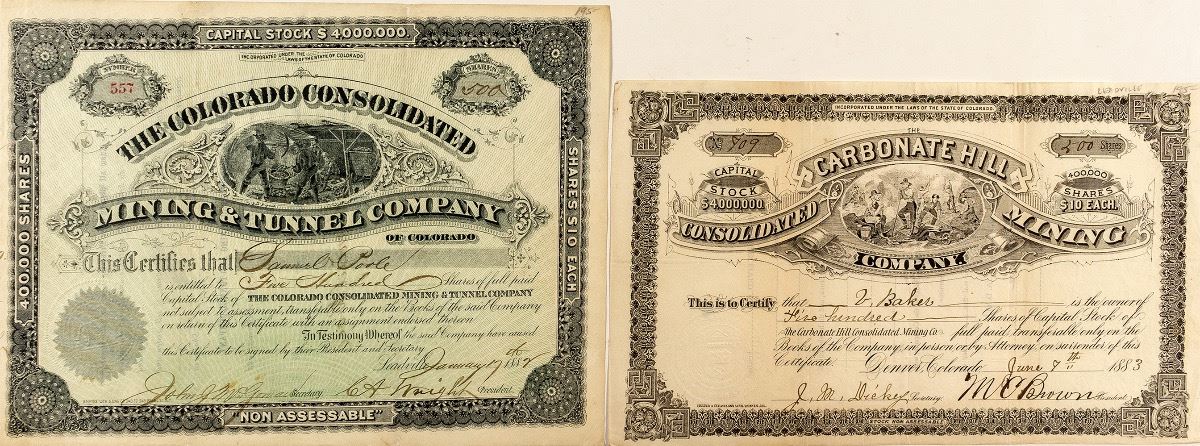 195-
CAPITAL STOCK $ 4000.000.
INCORPORATED UNDER THE LAWS OF THE STATE OF COLORADO
NUMBER
557
SHARES
500
400.000 SHARES
SHARES $10 EACH
THE COLORADO CONSOLIDATED
MINING & TUNNEL COMPANY
OF COLORADO
This Certifies that Samuel Poole
is entitled to Five Hundred Shares of full paid
Capital Stock of THE COLORADO CONSOLIDATED MINING & TUNNEL COMPANY
not subject to assessment, transferable only on the Books of the said Company
on return of this Certificate with an assignment endorsed hereon.
In Testimony Whereof the said Company have caused
this Certificate to be signed by their President and Secretary
Leadville January 17th 188
Secretary President.
"NON ASSESSABLE"
LEADVILLE 195-
INCORPORATED UNDER THE LAWS OF THE STATE OF COLORADO.
No 809
500 Shares
THE
CARBONATE HILL
CAPITAL
STOCK
$4000000
400,000
SHARES
$10 EACH.
CONSOLIDATED MINING
COMPANY
This is to Certify that V. Baker is the owner of
Five hundred Shares of Capital Stock of
The Carbonate Hill Consolidated Mining Co full paid, transferable only on the
Books of the Company, in person or by Attorney, on surrender of this
Certificate. Denver, Colorado June 7th 1883
J. M. Dickey Secretary. M C Brown President
STOCK NON ASSESSABLE